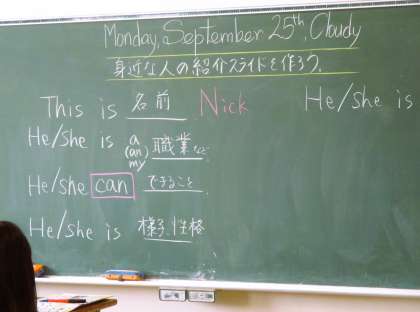 Monday, September 25th, Cloudy
身近な人の紹介スライドを作ろう。
This is 名前 Nick
He/she is a (an) my 職業など
He/she can できること
He/she is 様子、性格
He/she is